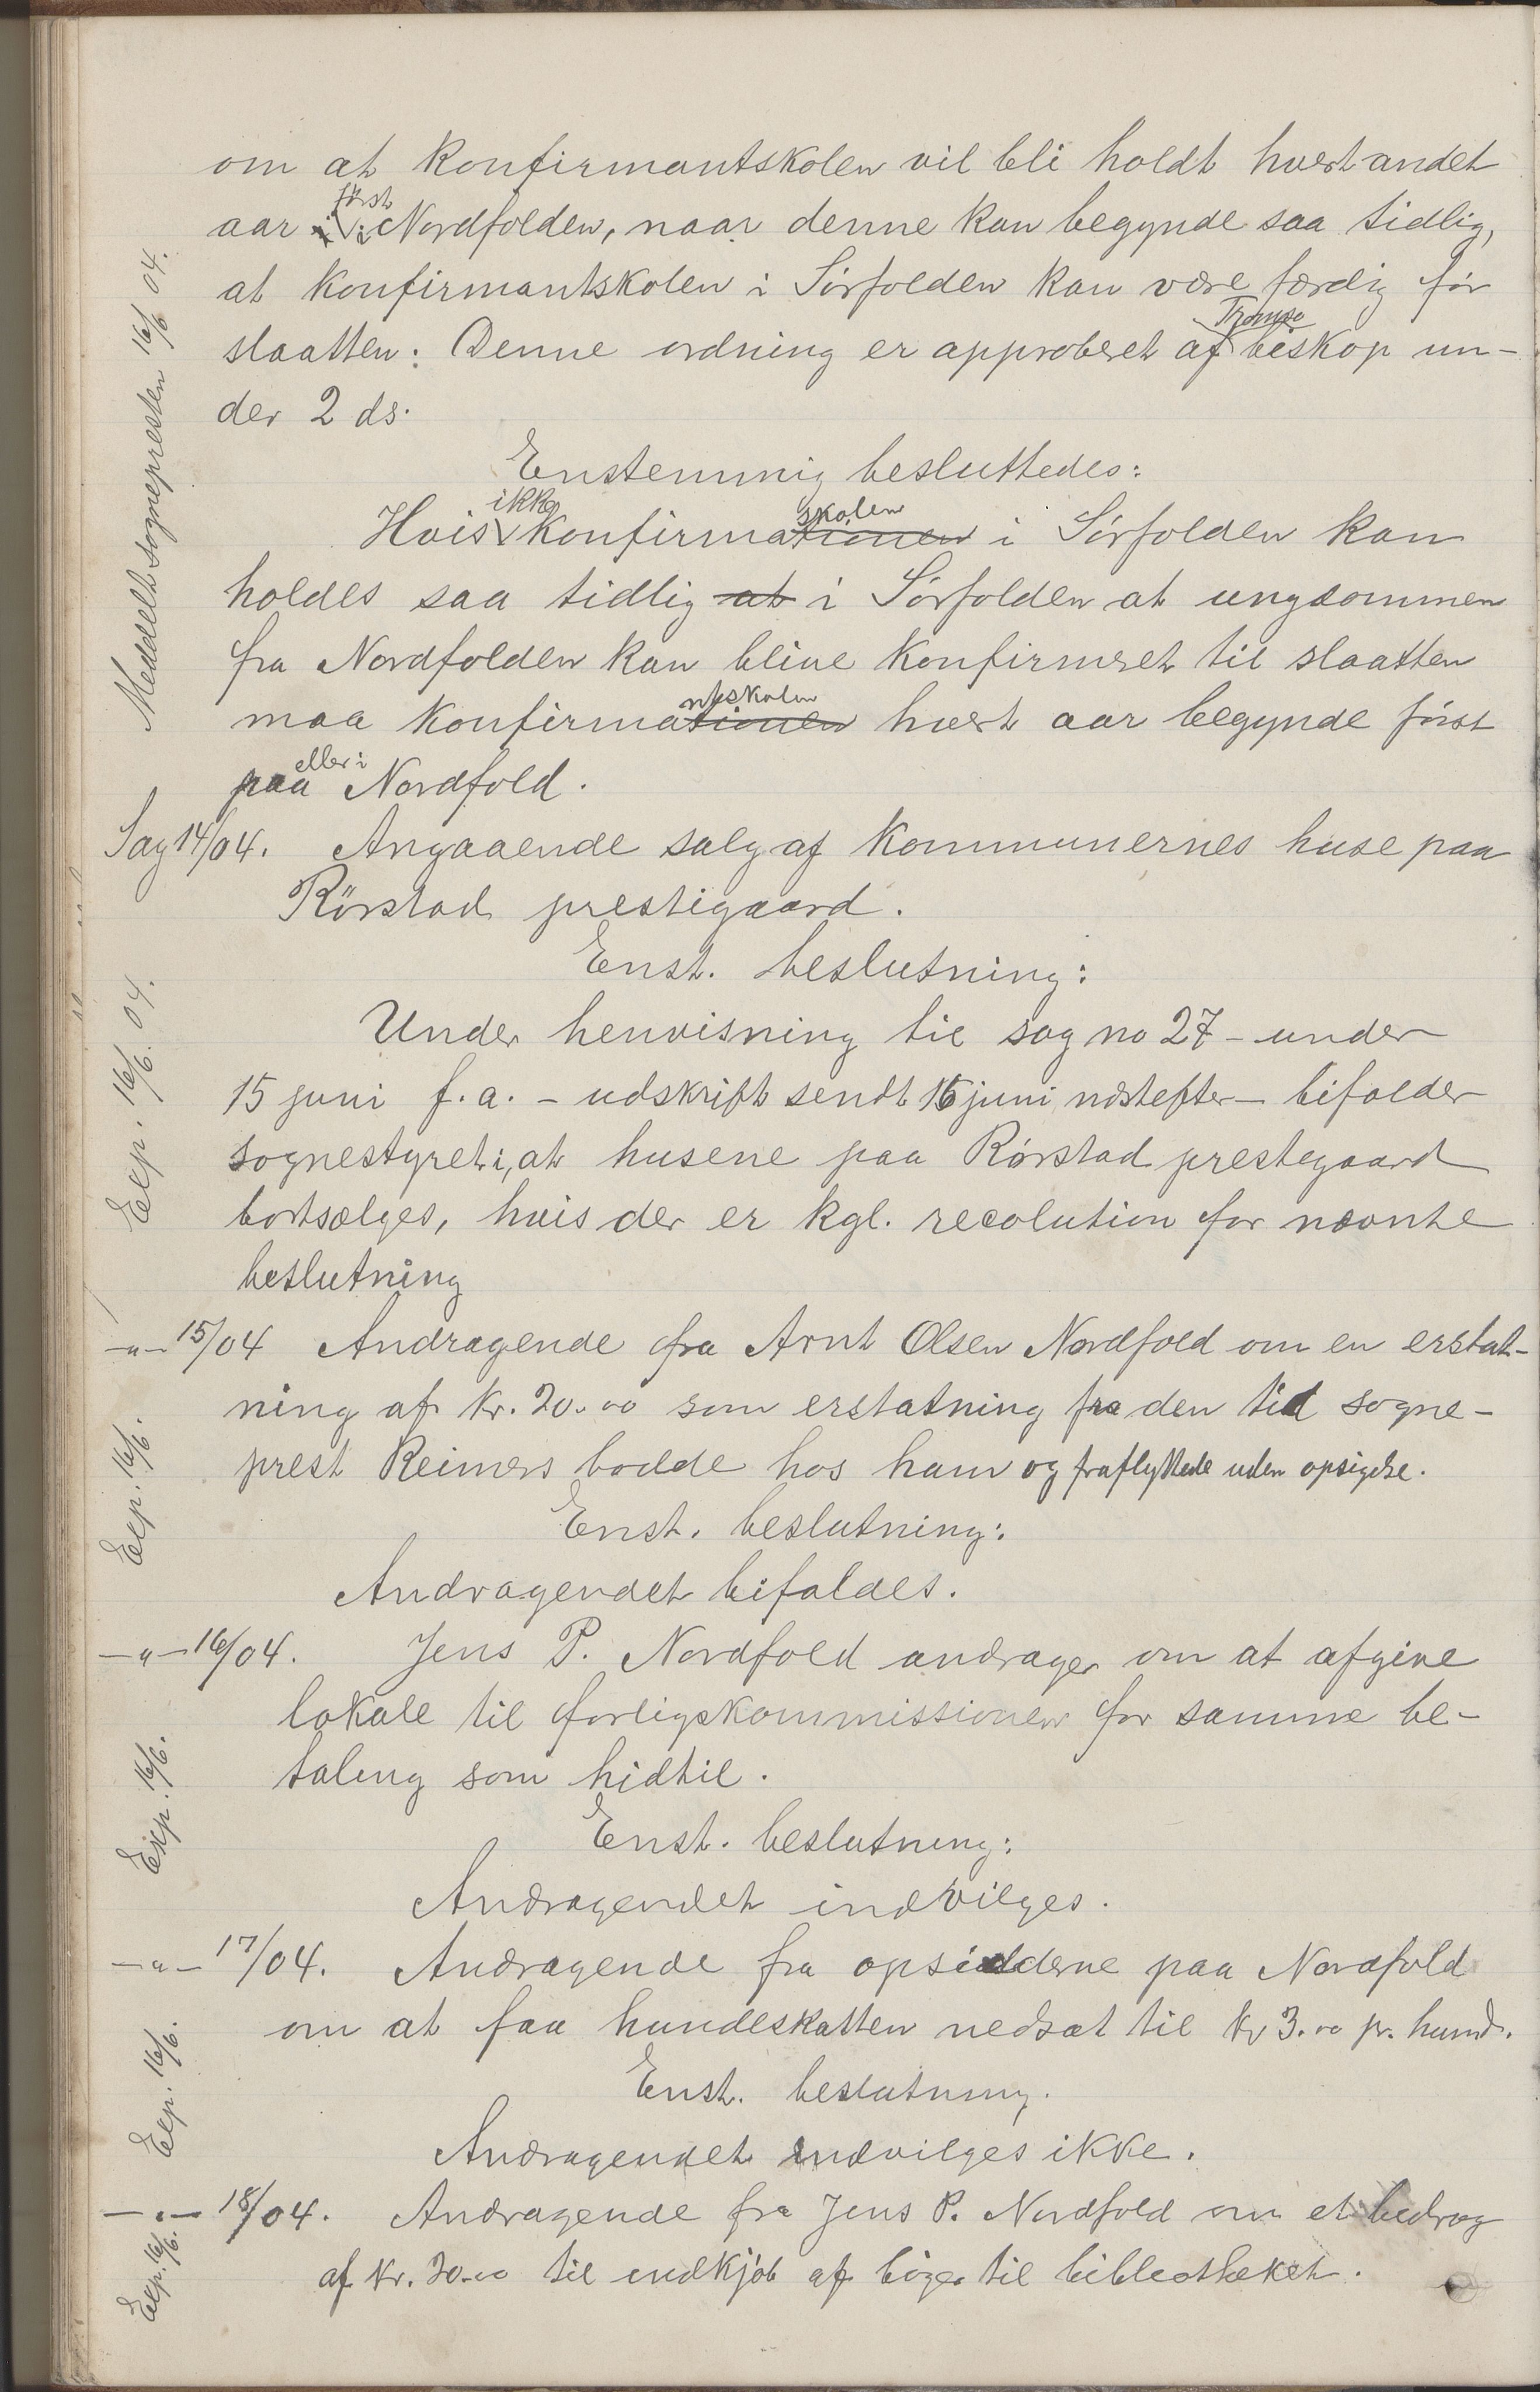 om at Konfirmantskolen vil bli holdt hvert andet
aar først i Nordfolden, naar denne kan begynde saa tidlig,
at Konfirmantskolen i Sørfolden kan være færdig før
slaatten. Denne ordning er approberet af Tromsø biskop un-
der 2 ds.
Enstemmig besluttedes:
Hvis ikke Konfirmationen skolen i Sørfolden kan
holdes saa tidlig at i Sørfolden at ungdommen
fra Nordfolden kan blive Konfirmeret til slaatten
maa Konfirmationen ntskolen hvert aar begynde først
paa eller i Nordfold.
Meddelt sognepresten 16/6 04.
Sag 14/04. Angaaende salg af Kommunernes huse paa
Rörstad prestigaard.
Enst. beslutning:
Under henvisning til sag no 27 - under
15 juni f.a. - udskrift sendt 16 juni næstefter - bifalder
sognestyret i, at husene paa Rørstad prestegaard
bortsælges, hvis der er kgl. resolution for nævnte
beslutning
Exp. 16/6. 04.
-"- 15/04 Andragende fra Arnt Olsen Nordfold om en erstat-
ning af Kr. 20.00 som erstatning fra den tid sogne-
prest Reimers bodde hos ham og fraflyttede uden opsigelse.
Enst. beslutning:
Andragendet bifaldes.
Exp. 16/6.
-"- 16/04. Jens P. Nordfold andrager om at afgive
lokale til forligskommissionen for samme be-
taling som hidtil.
Enst. beslutning:
Andragendet indvilges.
Exp. 16/6.
-"- 17/04. Andragende fra opsidderne paa Nordfold
om at faa hundeskatten nedsat til Kr 3.00 pr. hund.
Enst. beslutning.
Andragendet indvilges ikke.
Exp. 16/6.
-"- 18/04. Andragende fra Jens P. Nordfold om et bedrag
af Kr. 20.00 til indkjøb af bøger til bibliotheket.
Exp. 16/6.